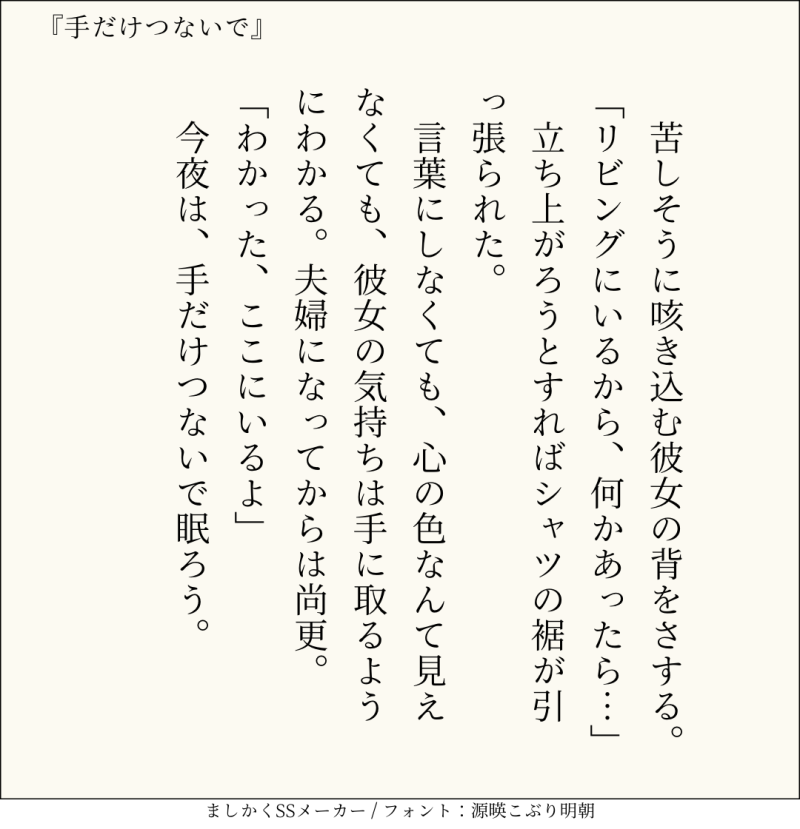 『手だけつないで』
　苦しそうに咳き込む彼女の背をさする。
「リビングにいるから、何かあったら…」
　立ち上がろうとすればシャツの裾が引
っ張られた。
　言葉にしなくても、心の色なんて見え
なくても、彼女の気持ちは手に取るよう
にわかる。夫婦になってからは尚更。
「わかった、ここにいるよ」
　今夜は、手だけつないで眠ろう。
ましかくSSメーカー / フォント：源暎こぶり明朝